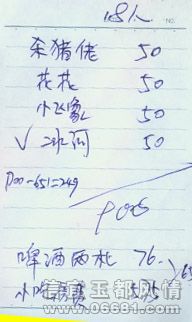 18人
NO.
杀猪佬 50
花花 50
小飞象 50
√ 冰河 50
900-651=249
啤酒两扎 76
575
信宜玉都风情
www.06681.com